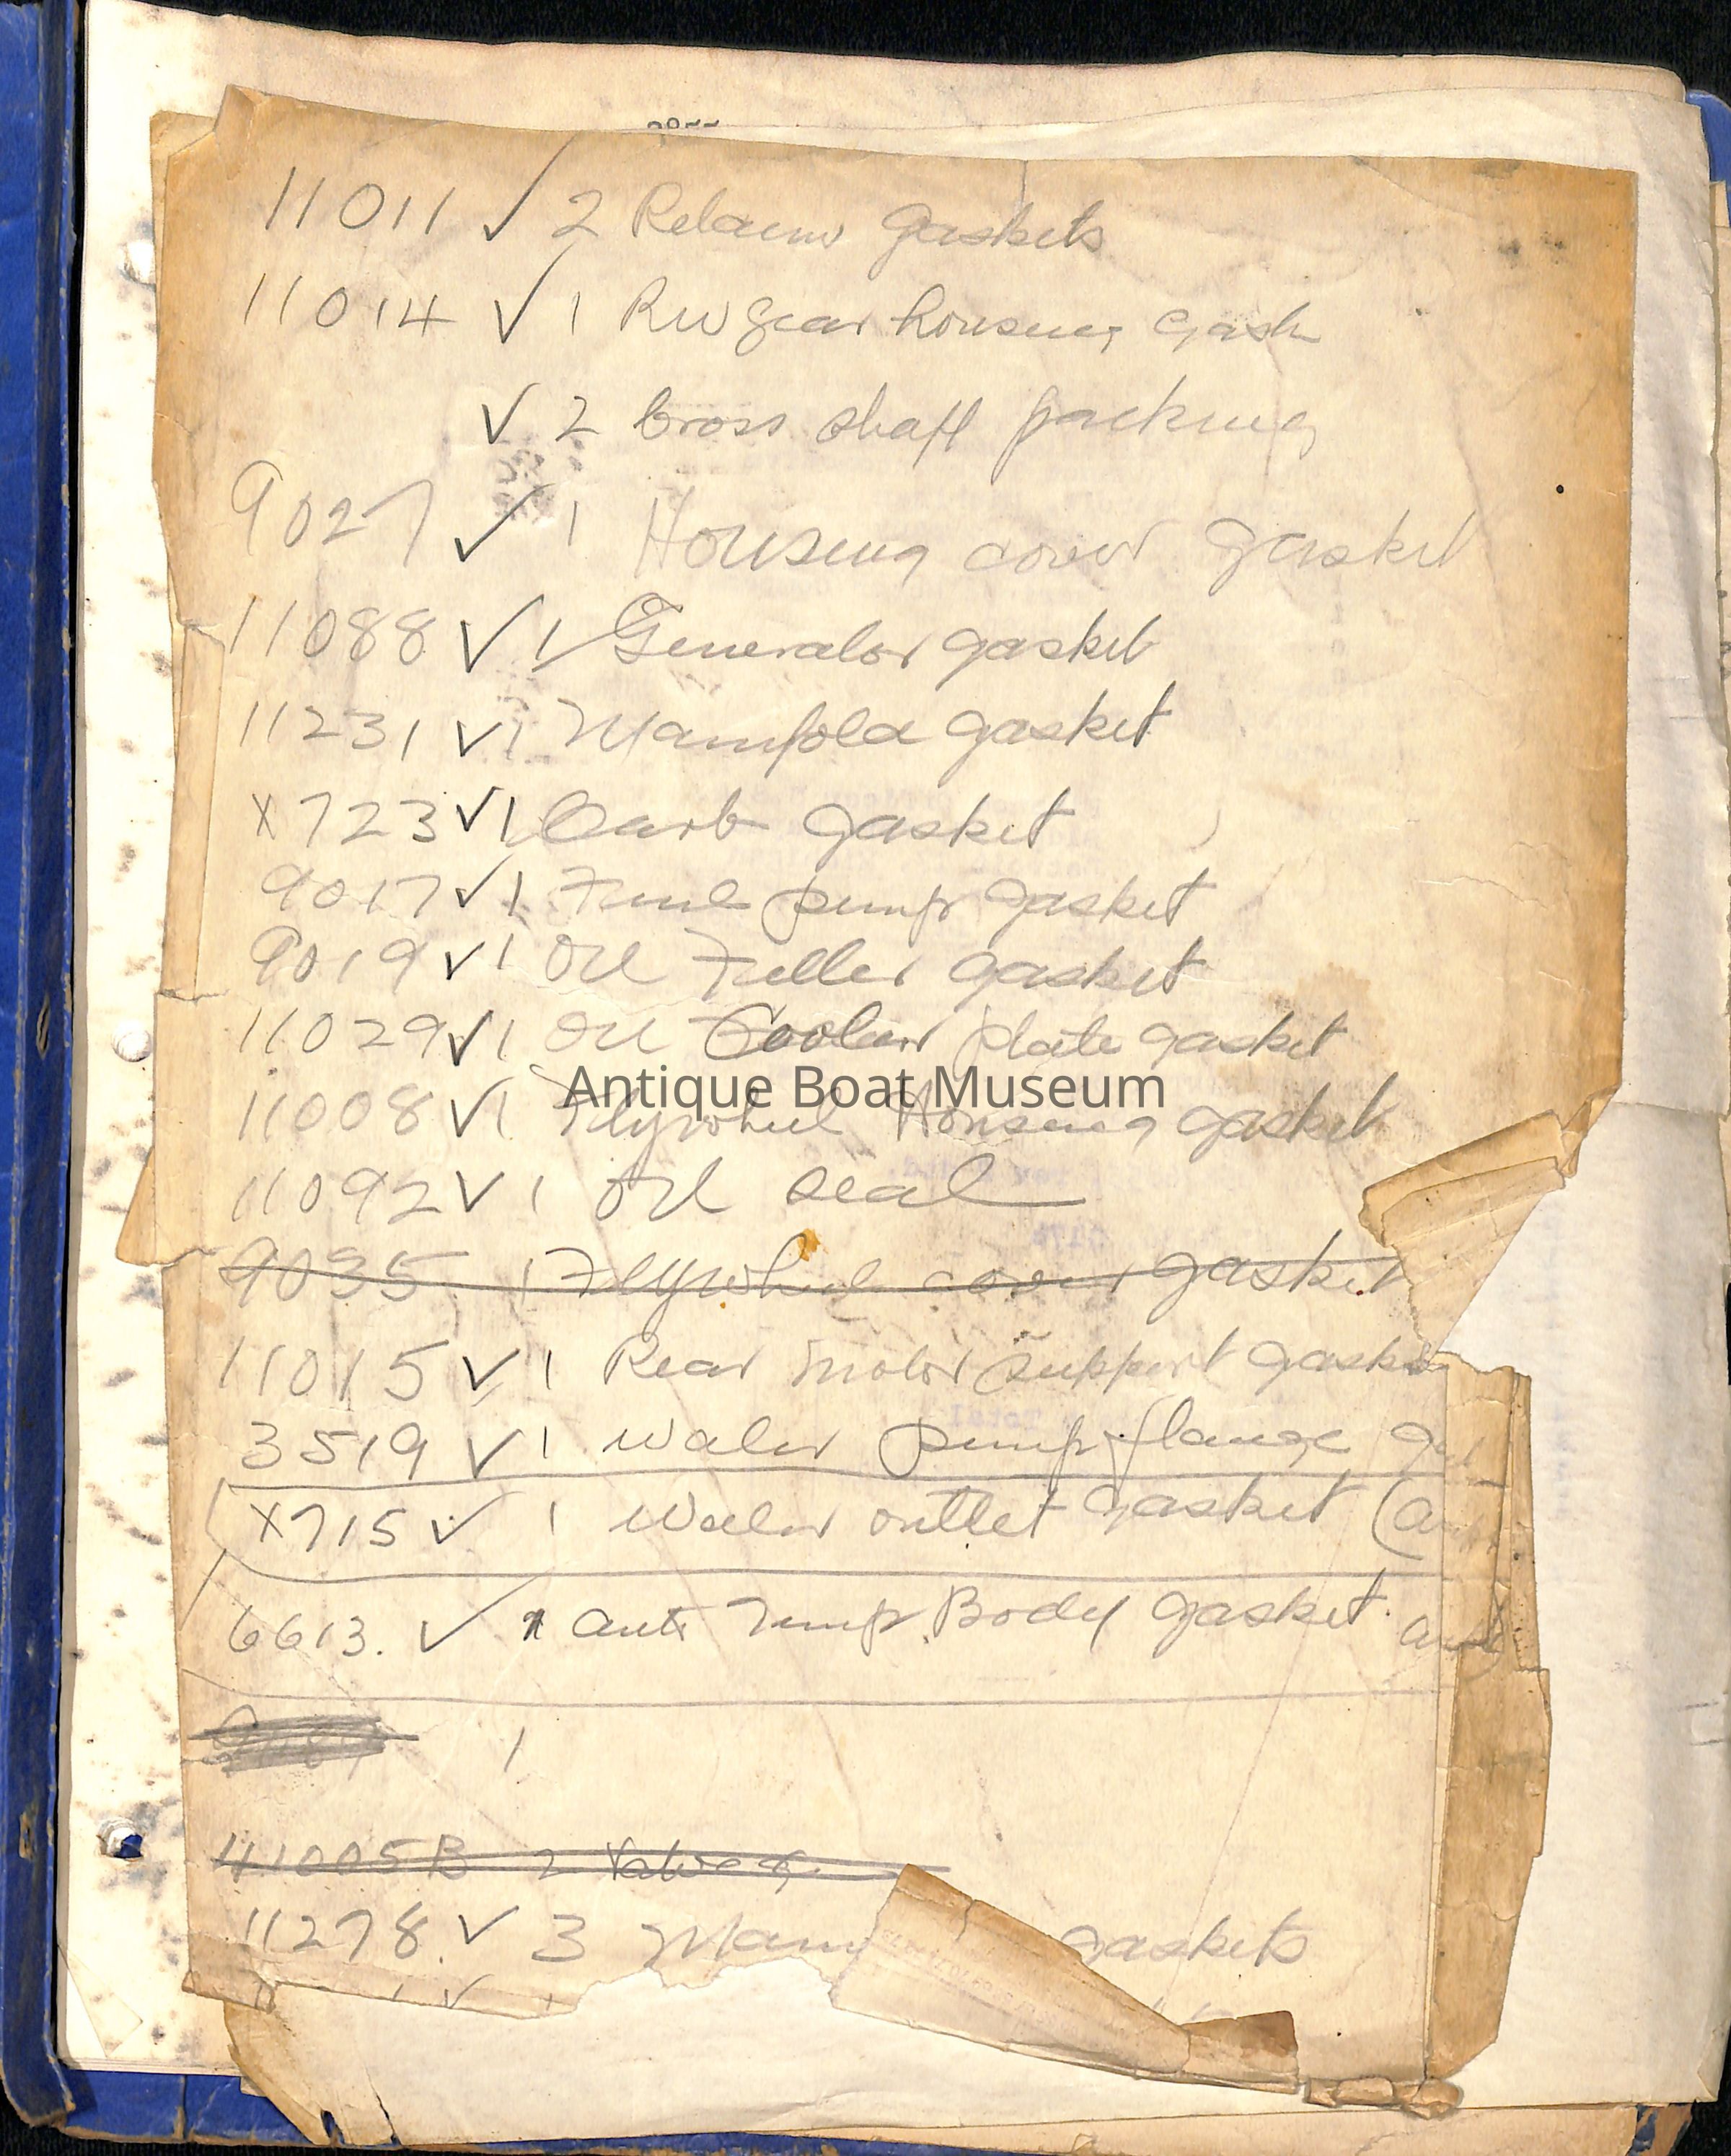 11011 ✓ 2 Retainer gaskets
11014 ✓ 1 Rev gear housing gask
✓ 2 Cross shaft packing
9027 ✓ 1 Housing cover gasket
11088 ✓ 1 Generator gasket
11231 ✓ 1 Manifold gasket
X723 ✓ 1 Carb gasket
9017 ✓ 1 Fuel pump gasket
9019 ✓ 1 Oil Filler gasket
11029 ✓ 1 Oil Cooler plate gasket
Antique Boat Museum
11008 ✓ 1 Flywheel Housing gasket
11092 ✓ 1 Oil seal
9035 1 Flywheel cover gasket
11015 ✓ 1 Rear motor support gasket
3519 ✓ 1 Water pump flange
X715 ✓ 1 Water outlet gasket
6613. ✓ Body gasket.
1
11005B 2
11278 ✓ 3 gaskets